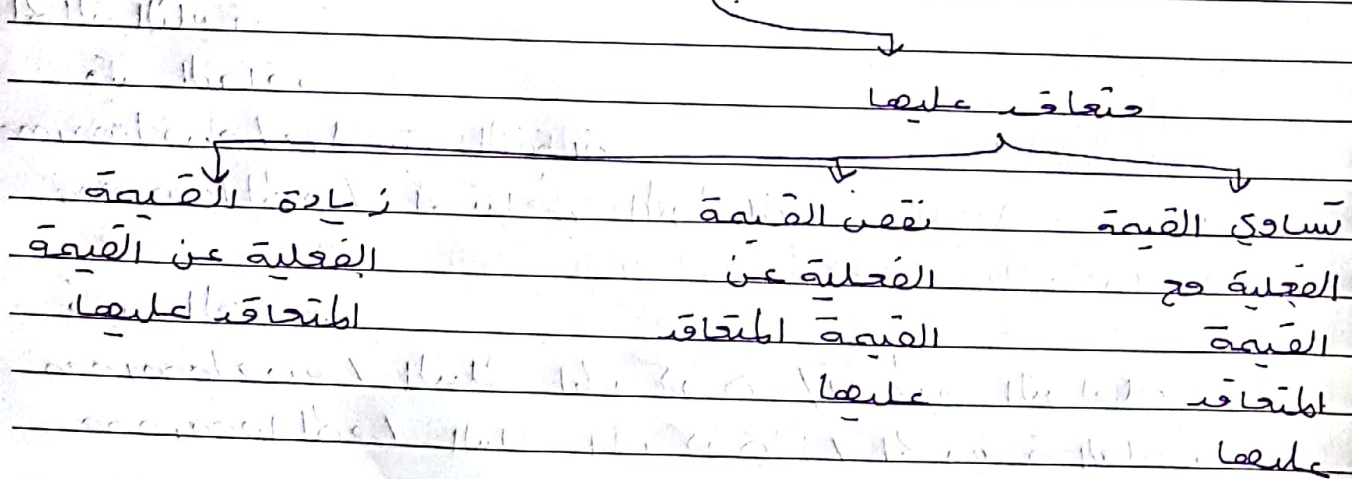 متعاقد عليها
تساوي القيمة
الفعلية مع
القيمة
المتعاقد
عليها
نقص القيمة
الفعلية عن
القيمة المتعاقد
عليها
زيادة القيمة
الفعلية عن القيمة
المتعاقد عليها